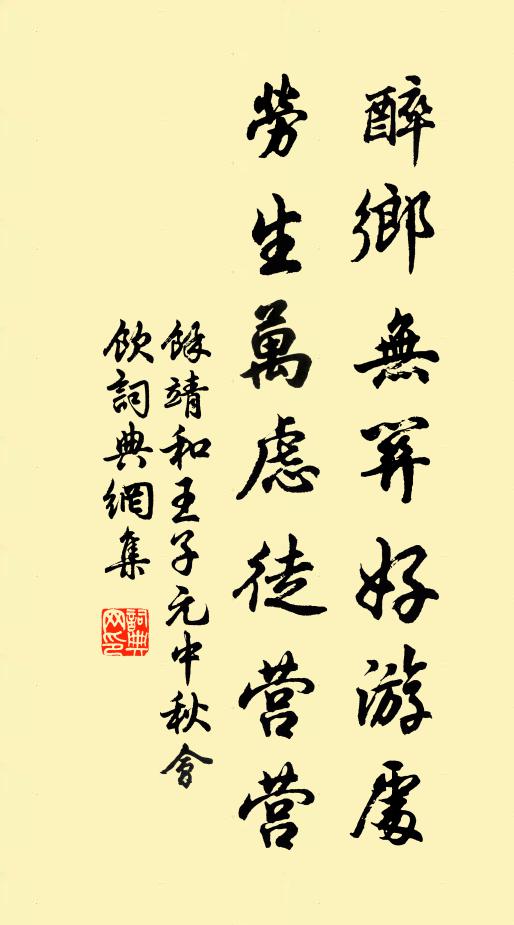 醉鄉無筭好游處
勞生萬慮徒营营
餘靖和王子元中秋會
飲詞典網集
詞典
网印